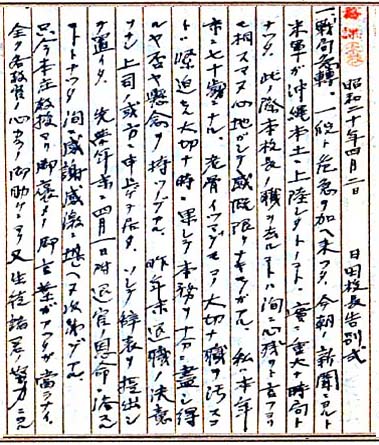 昭和二十年四月二日　日田校長告別式
一、戦局急転、一段ト危急ヲ加ヘ来ツタ、今朝ノ新聞ニヨルト
米軍ガ沖縄本土ニ上陸シタトイフ、実ニ重大ナ時局ト
ナツタ、此ノ際本校長ノ職ヲ去ルコトハ洵ニ心残リデアツテ
相スマヌ心地ガシテ感慨限リナキモノガアル、私ハ本年
市ニ七十 ニナル、老骨イツマデモコノ大切ナ職ヲ汚スコ
ト緊迫セル大切ナ時ニ果シテ本務ヲ十分ニ尽シ得
ルヤ否ヤ懸念ヲ持ツ 、昨年末退職ノ決意
ヲナシ上司ノ或方ニ申上ゲ 居タ、ソシテ辞表ヲ提出シ
テ置イタ、先 第 四月一日附退官ノ恩命ニ浴スル
コトトナツタ、洵ニ感謝感激ニ堪ヘヌ次第デアル、
只今本庄教授ヨリ御褒メノ御言葉ガアツタガ当ラナイ、
全ク各教官ノ心カラノ御助ケニヨリ又生徒諸君ノ努力ニヨ